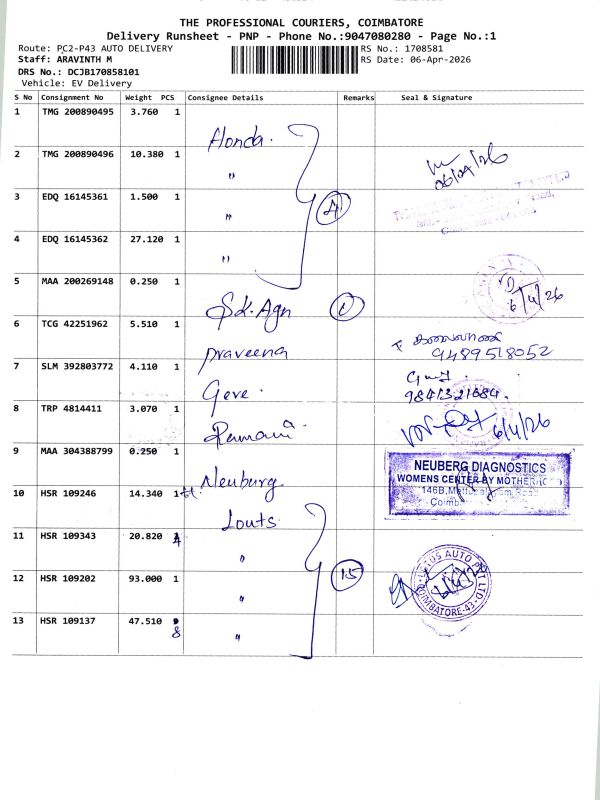 THE PROFESSIONAL COURIERS, COIMBATORE
Delivery Runsheet - PNP - Phone No.:9047080280 - Page No.:1
Route: PC2-P43 AUTO DELIVERY RS No.: 1708581
Staff: ARAVINTH M RS Date: 06-Apr-2026
DRS No.: DCJB170858101
Vehicle: EV Delivery
S No Consignment No Weight PCS Consignee Details Remarks Seal & Signature
1 TMG 200890495 3.760 1 Honda.
2 TMG 200890496 10.380 1 " 06/04/26
3 EDQ 16145361 1.500 1 " 4
4 EDQ 16145362 27.120 1 "
5 MAA 200269148 0.250 1 S.K. Agn 6/4/26
6 TCG 42251962 5.510 1 Praveena கலைவாணி
9489518052
7 SLM 392803772 4.110 1 Geve. 9841321684.
8 TRP 4814411 3.070 1 Ramani 6/4/26
9 MAA 304388799 0.250 1 Neuburg NEUBERG DIAGNOSTICS
WOMENS CENTER BY MOTHERHOOD
10 HSR 109246 14.340 1 Louts
11 HSR 109343 20.820 4 "
12 HSR 109202 93.000 1 " 15 LOTUS AUTO PVT LTD COIMBATORE-43
13 HSR 109137 47.510 8 "